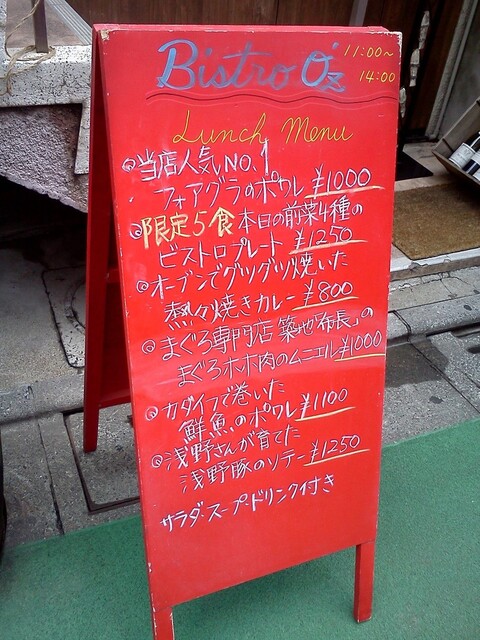 Bistro O'z 11:00~
14:00
Lunch Menu
◎当店人気NO.1
フォアグラのポワレ ¥1000
◎限定5食 本日の前菜4種の
ビストロプレート ¥1250
◎オーブンでグツグツ焼いた
熱々焼きカレー ¥800
◎まぐろ専門店 築地「布長」の
まぐろホホ肉のムニエル ¥1000
◎カダイフで巻いた
鮮魚のポワレ ¥1100
◎浅野さんが育てた
浅野豚のソテー ¥1250
サラダ・スープ・ドリンク付き